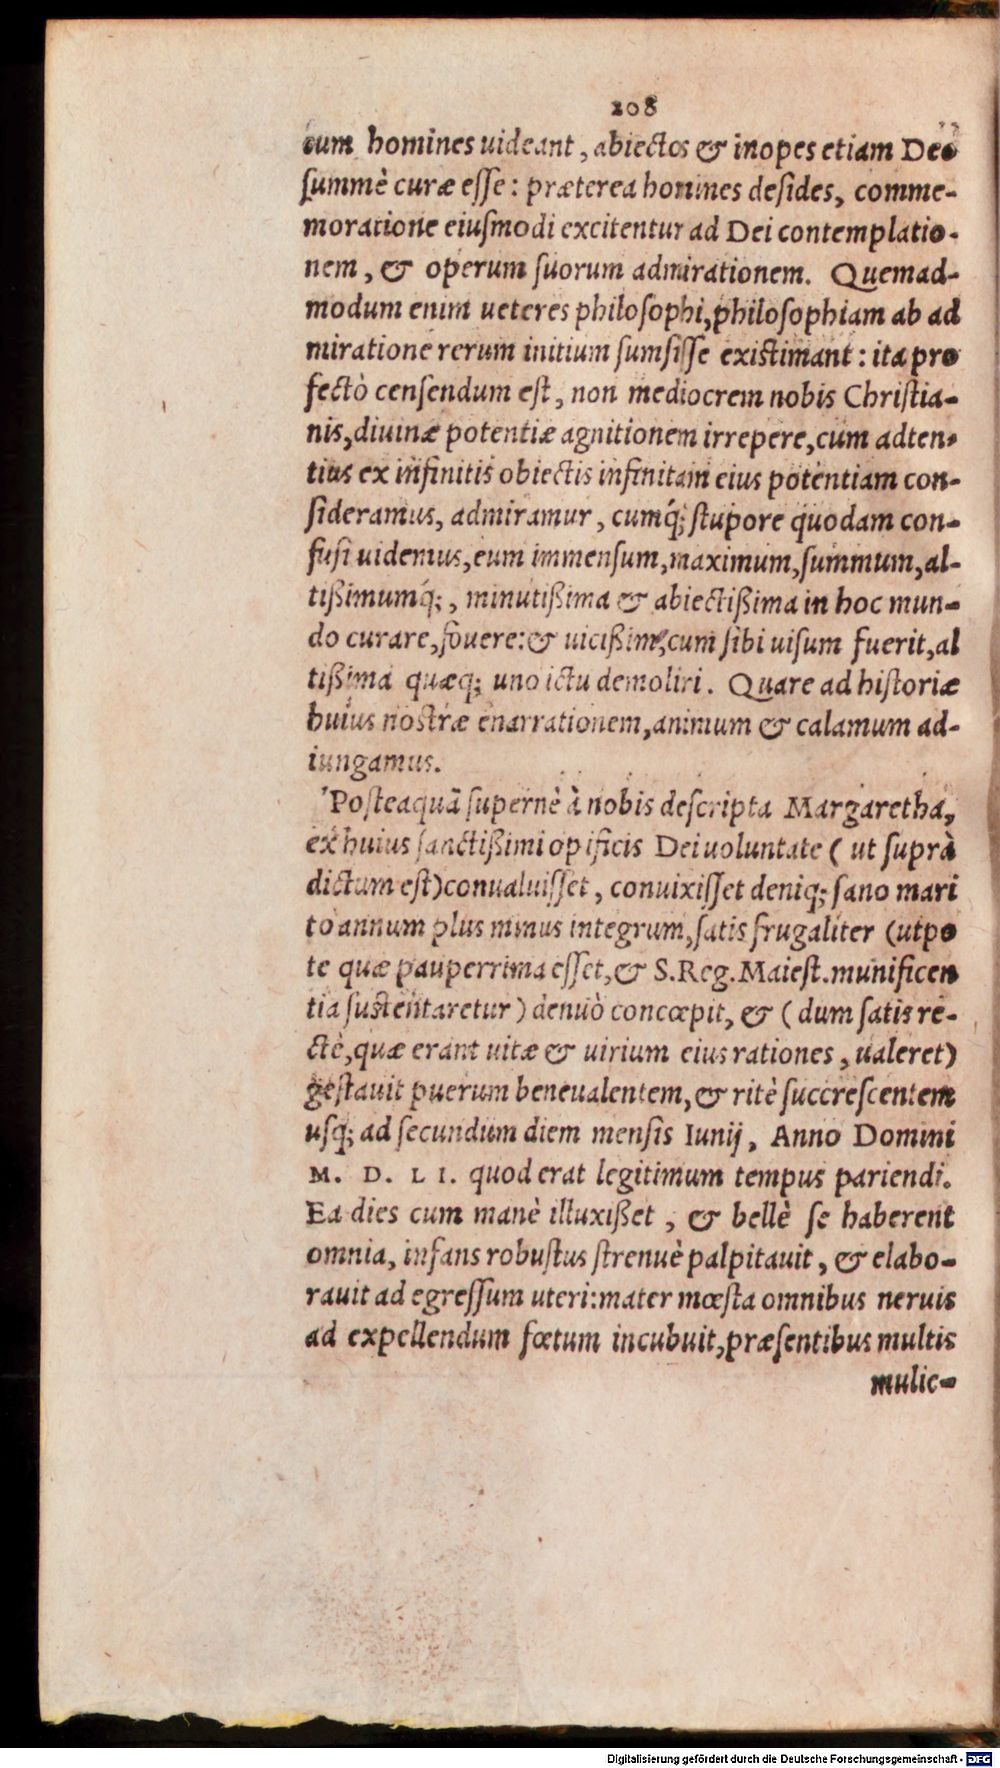 208
cum homines uideant, abiectos & inopes etiam Deo
summè curæ esse: præterea homines desides, comme-
moratione eiusmodi excitentur ad Dei contemplatio-
nem, & operum suorum admirationem. Quemad-
modum enim ueteres philosophi, philosophiam ab ad
miratione rerum initium sumsisse existimant: ita pro
fectò censendum est, non mediocrem nobis Christia-
nis, diuinæ potentiæ agnitionem irrepere, cum adten-
tius ex infinitis obiectis infinitam eius potentiam con-
sideramus, admiramur, cumq́; stupore quodam con-
fusi uidemus, eum immensum, maximum, summum, al-
tißimumq́;, minutißima & abiectißima in hoc mun-
do curare, fouere: & uicißim, cum sibi uisum fuerit, al
tißima quæq; uno ictu demoliri. Quare ad historiæ
huius nostræ enarrationem, animum & calamum ad-
iungamus.
Posteaquã supernè à nobis descripta Margaretha,
ex huius sanctißimi opificis Dei uoluntate (ut suprà
dictum est) conualuisset, conuixisset deniq; sano mari
to annum plus minus integrum, satis frugaliter (utpo
te quæ pauperrima esset, & S. Reg. Maiest. munificen
tia sustentaretur) denuò concœpit, & (dum satis re-
ctè, quæ erant uitæ & uirium eius rationes, ualeret)
gestauit puerum beneualentem, & ritè succrescentem
usq; ad secundum diem mensis Iunij, Anno Domini
M. D. L I. quod erat legitimum tempus pariendi.
Ea dies cum manè illuxißet, & bellè se haberent
omnia, infans robustus strenuè palpitauit, & elabo-
rauit ad egressum uteri: mater mœsta omnibus neruis
ad expellendum fœtum incubuit, præsentibus multis
mulie-
Digitalisierung gefördert durch die Deutsche Forschungsgemeinschaft - DFG